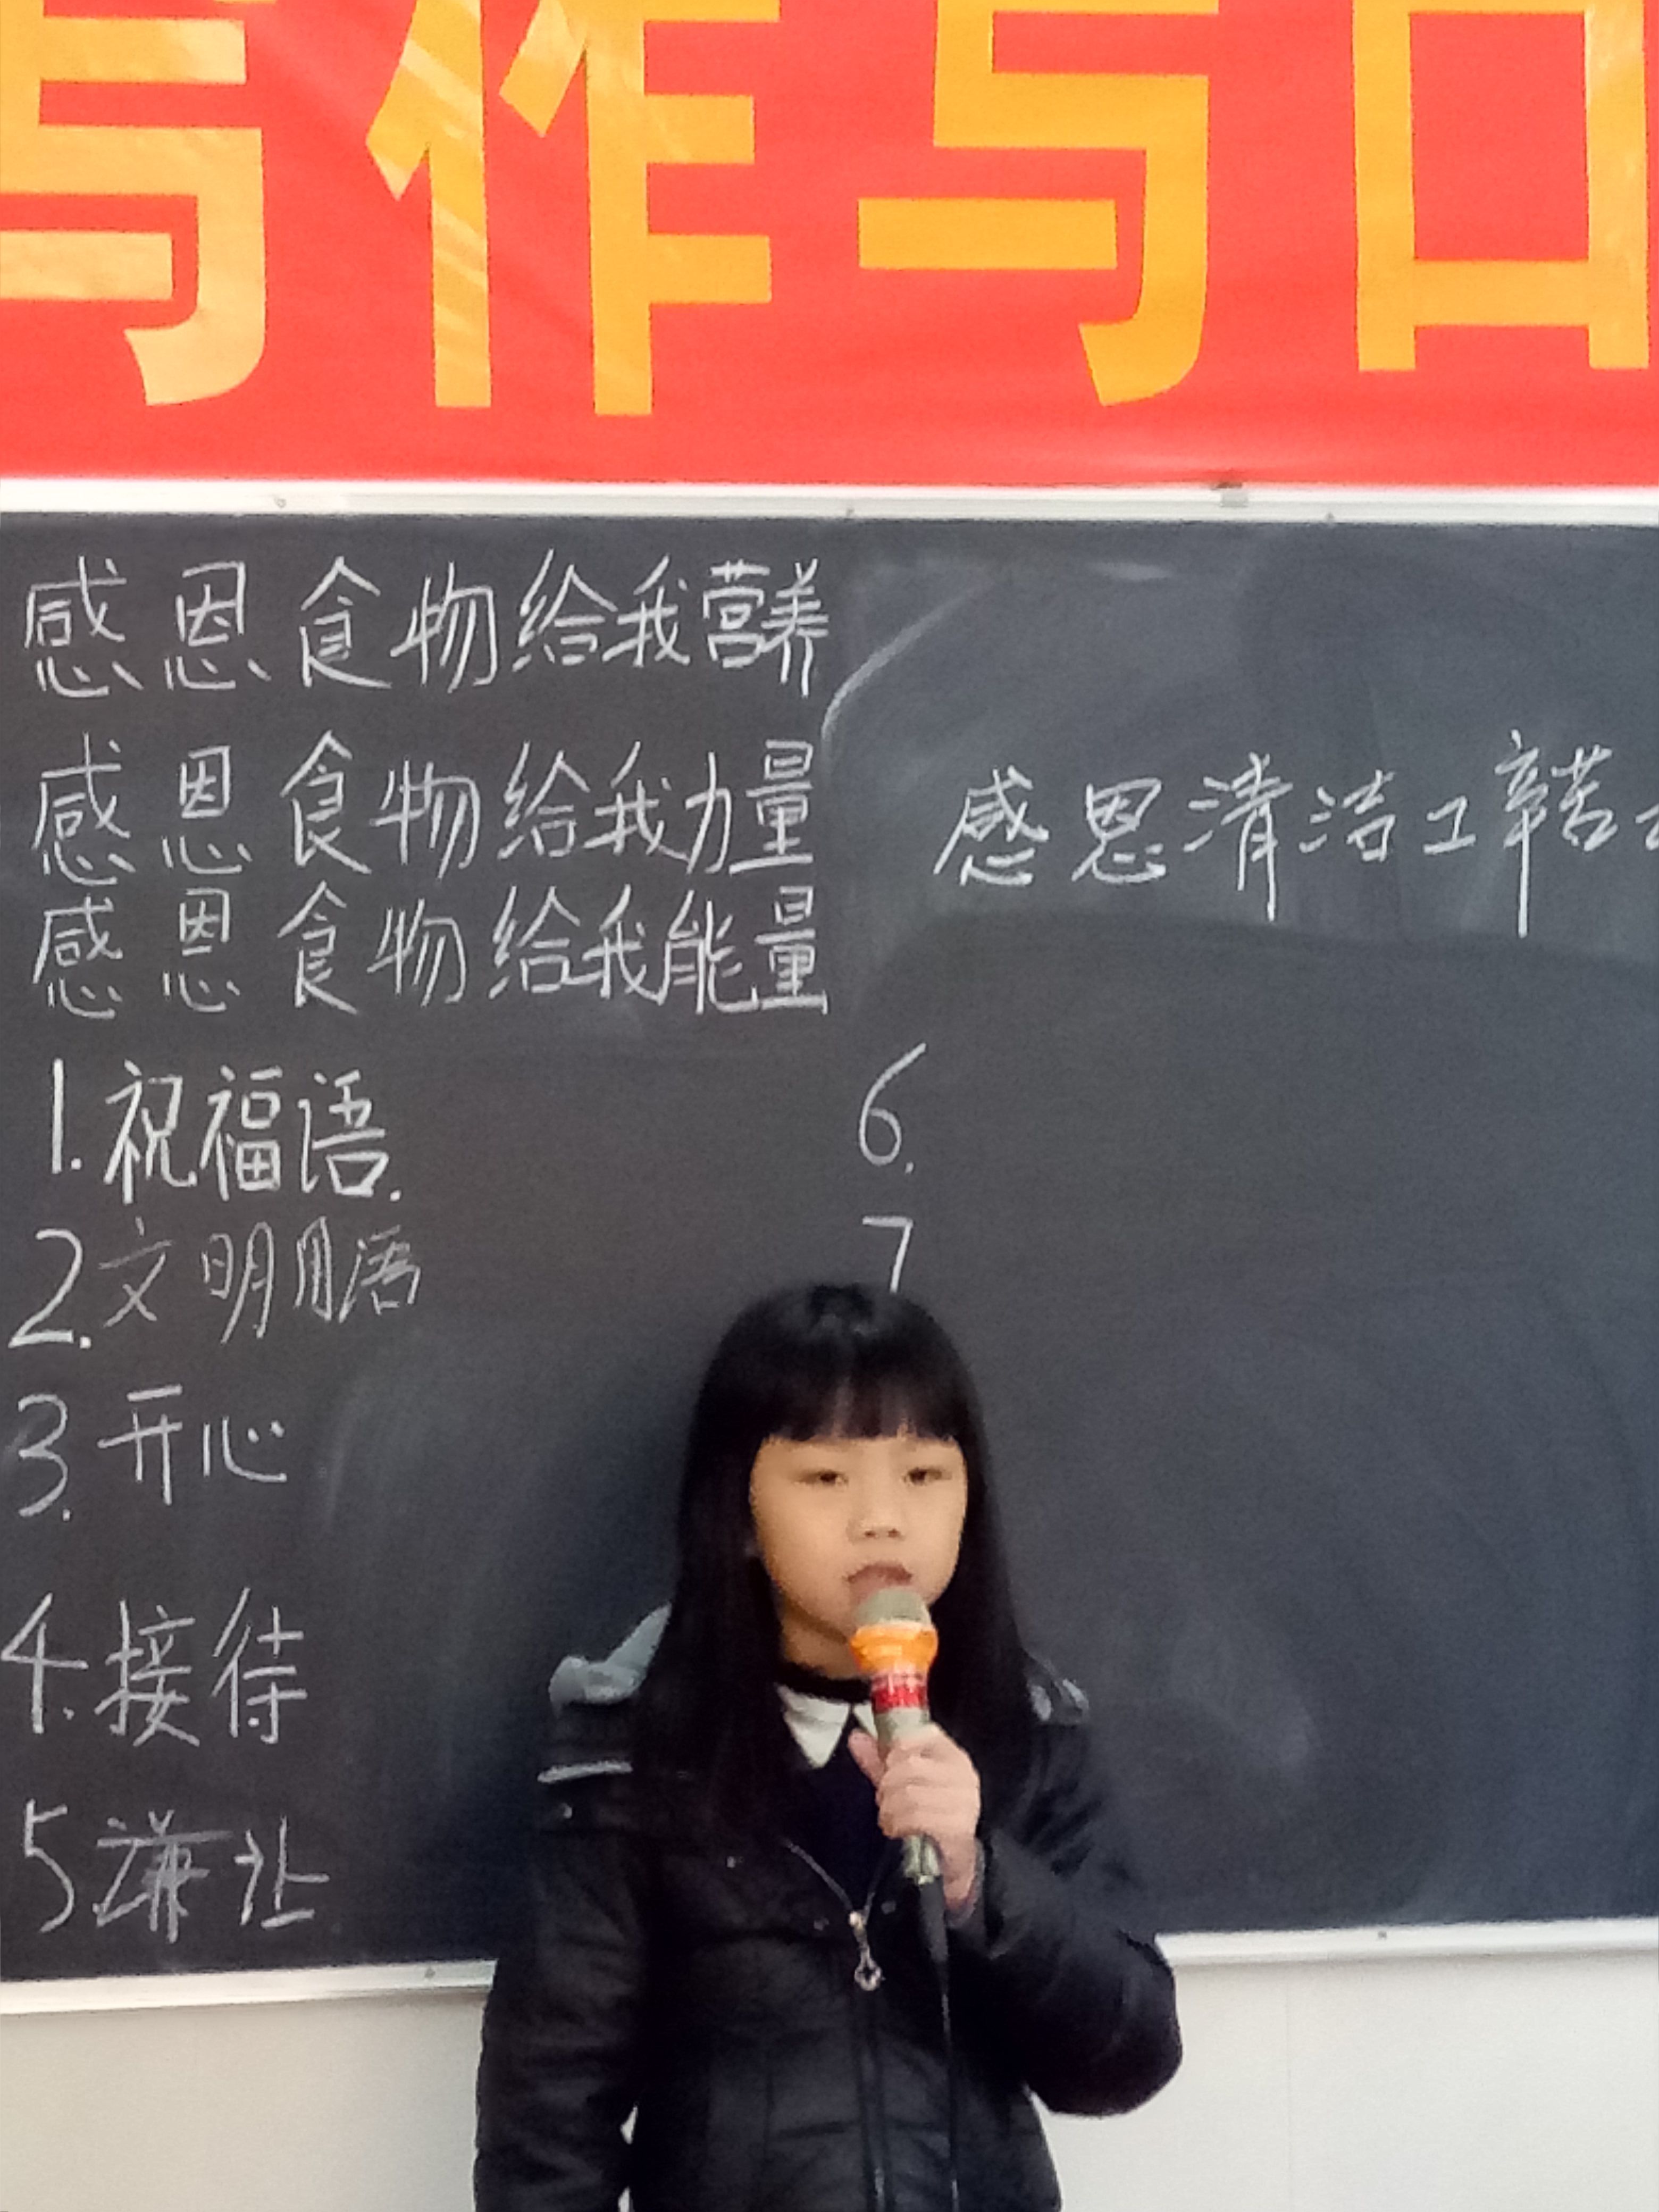 写作与口
感恩食物给我营养
感恩食物给我力量
感恩食物给我能量
感恩清洁工辛苦
1.祝福语.
2.文明用语
3.开心
4.接待
5谦让
6.
7